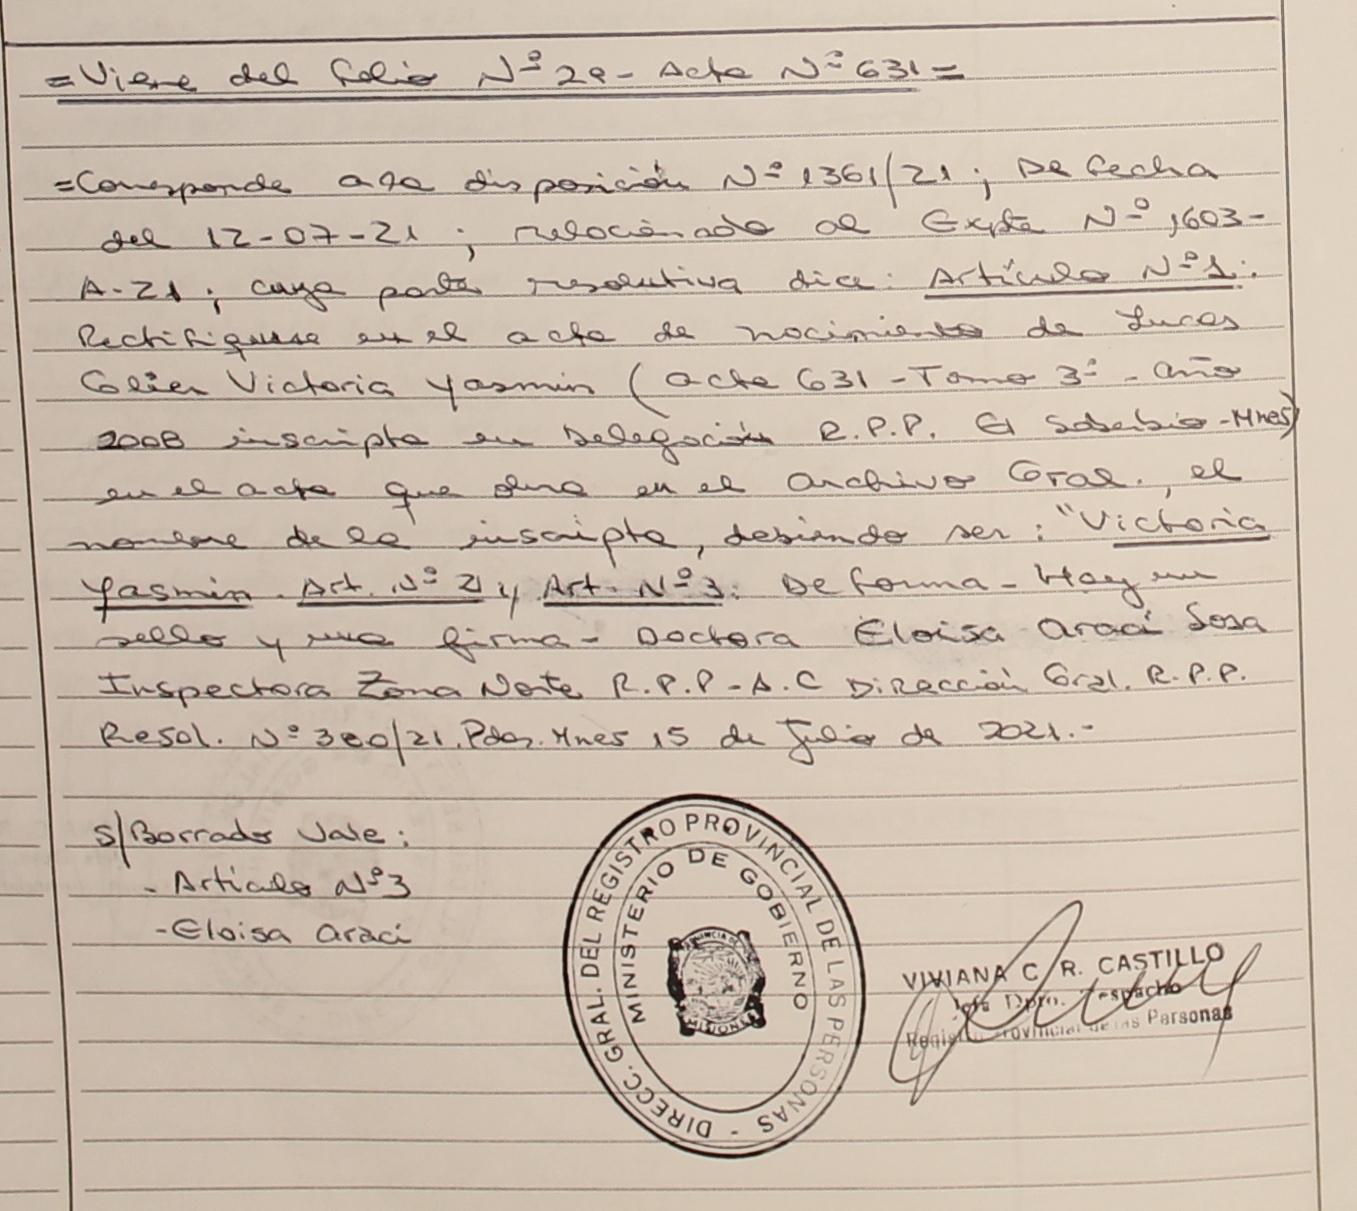 =Viene del Folio Nº 29- Acta Nº 631=
=Corresponde a la disposición Nº 1361/21; De fecha
del 12-07-21; relacionado al Expte Nº 1603-
A-21; cuya parte resolutiva dice: Artículo Nº1:
Rectifiquese en el acta de nacimiento de Lucas
Victoria Yasmin (acta 631-Tomo 3º-año
2008 inscripta en Delegación R.P.P. El Soberbio-Mnes)
en el acta que obra en el Archivo Gral., el
nombre de la inscripta, debiendo ser: "Victoria
Yasmin. Art. Nº 2 y Art. Nº3: De forma- Hay un
sello y una firma- Doctora Eloisa Araci Sosa
Inspectora Zona Norte R.P.P-A.C Dirección Gral. R.P.P.
Resol. Nº 300/21. Pdas. Mnes 15 de Julio de 2021.-
S/Borrado Vale:
- Artículo Nº3
-Eloisa Araci
DIRECC. GRAL. DEL REGISTRO PROVINCIAL DE LAS PERSONAS -
MINISTERIO DE GOBIERNO
MISIONES
VIVIANA C. R. CASTILLO
Jefa Dpto. Despacho
Registro Provincial de las Personas